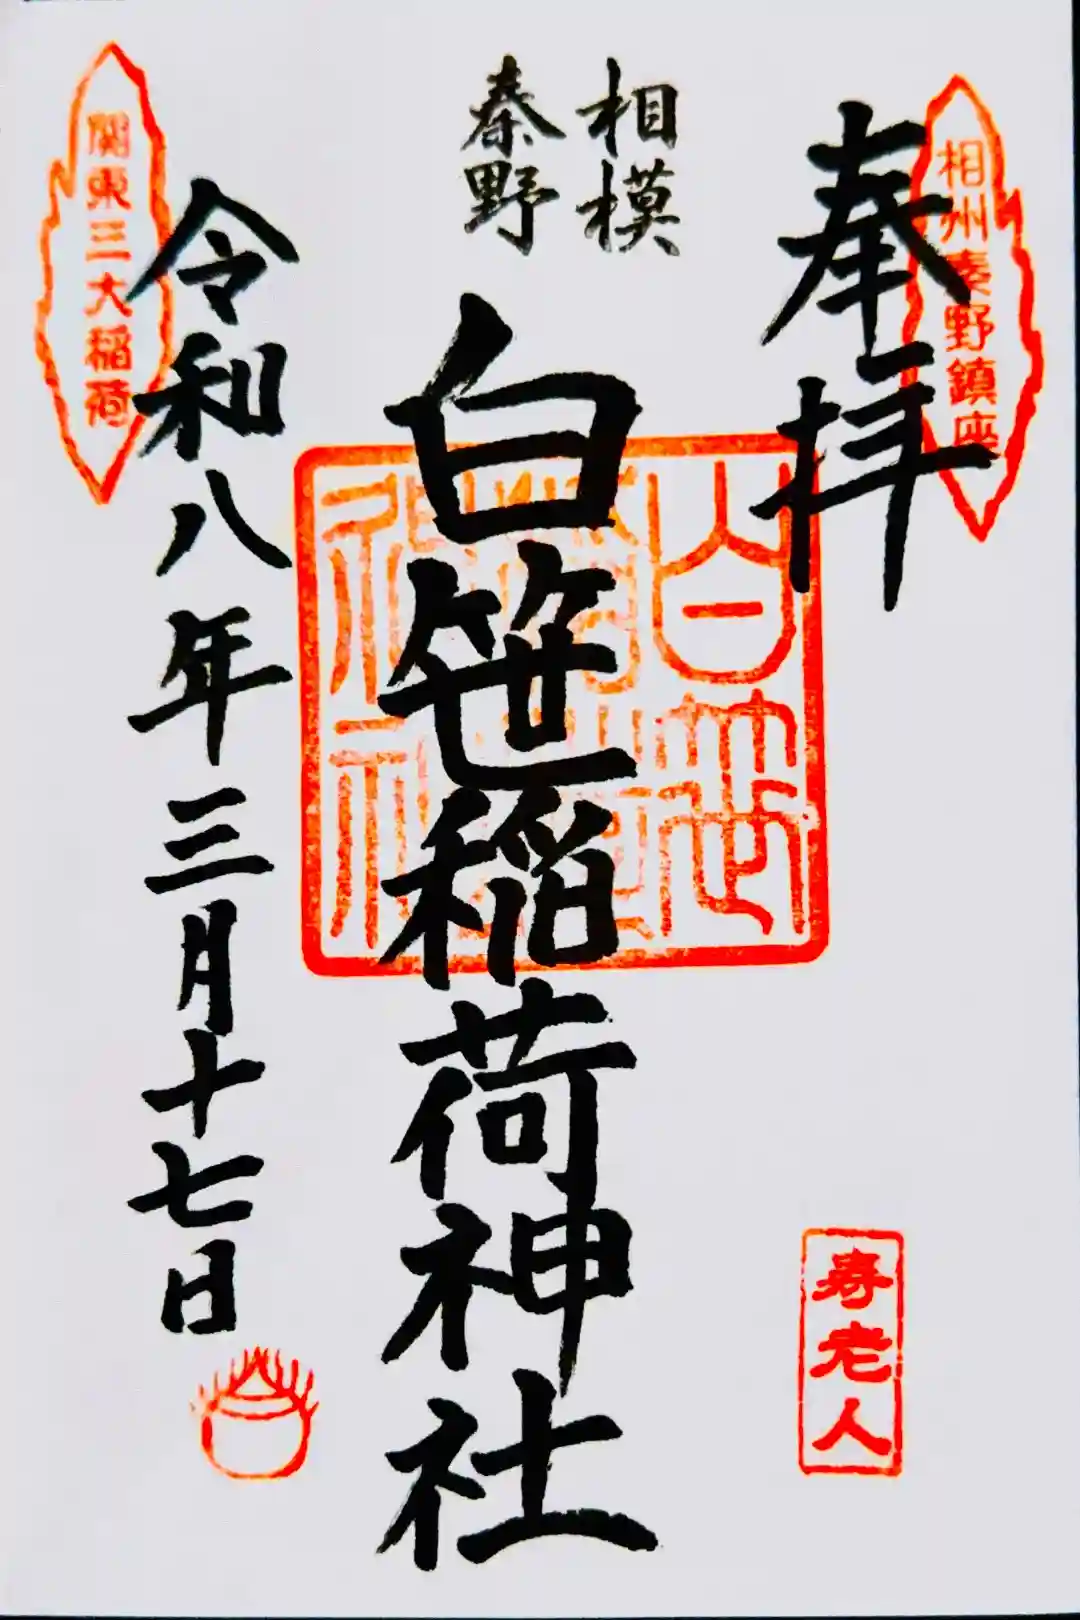 相州秦野鎮座
奉拝
相模
秦野
白笹稲荷神社
白笹稲荷神社
令和八年三月十七日
関東三大稲荷
寿老人